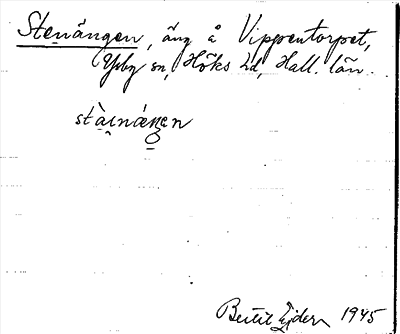 Stenängen, äng å Vippentorpet,
Ysby sn, Höks hd, Hall. län.
stàinǽŋen
Bertil Ejder 1945